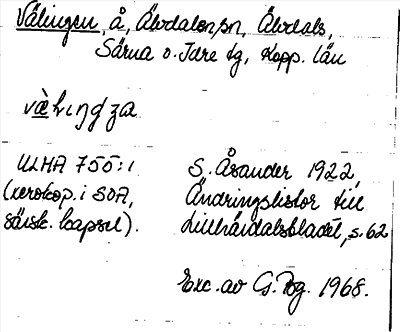 Välingen, å, Älvdalens sn, Älvdals,
Särna o. Idre tg, Kopp. län
ULMA 755:1
(xerokop. i SOA,
särsk. kapsel).
S. Åsander 1922,
Ändringslistor till
Lillhärdalsbladet, s. 62
Exc. av G. Pbg. 1968.